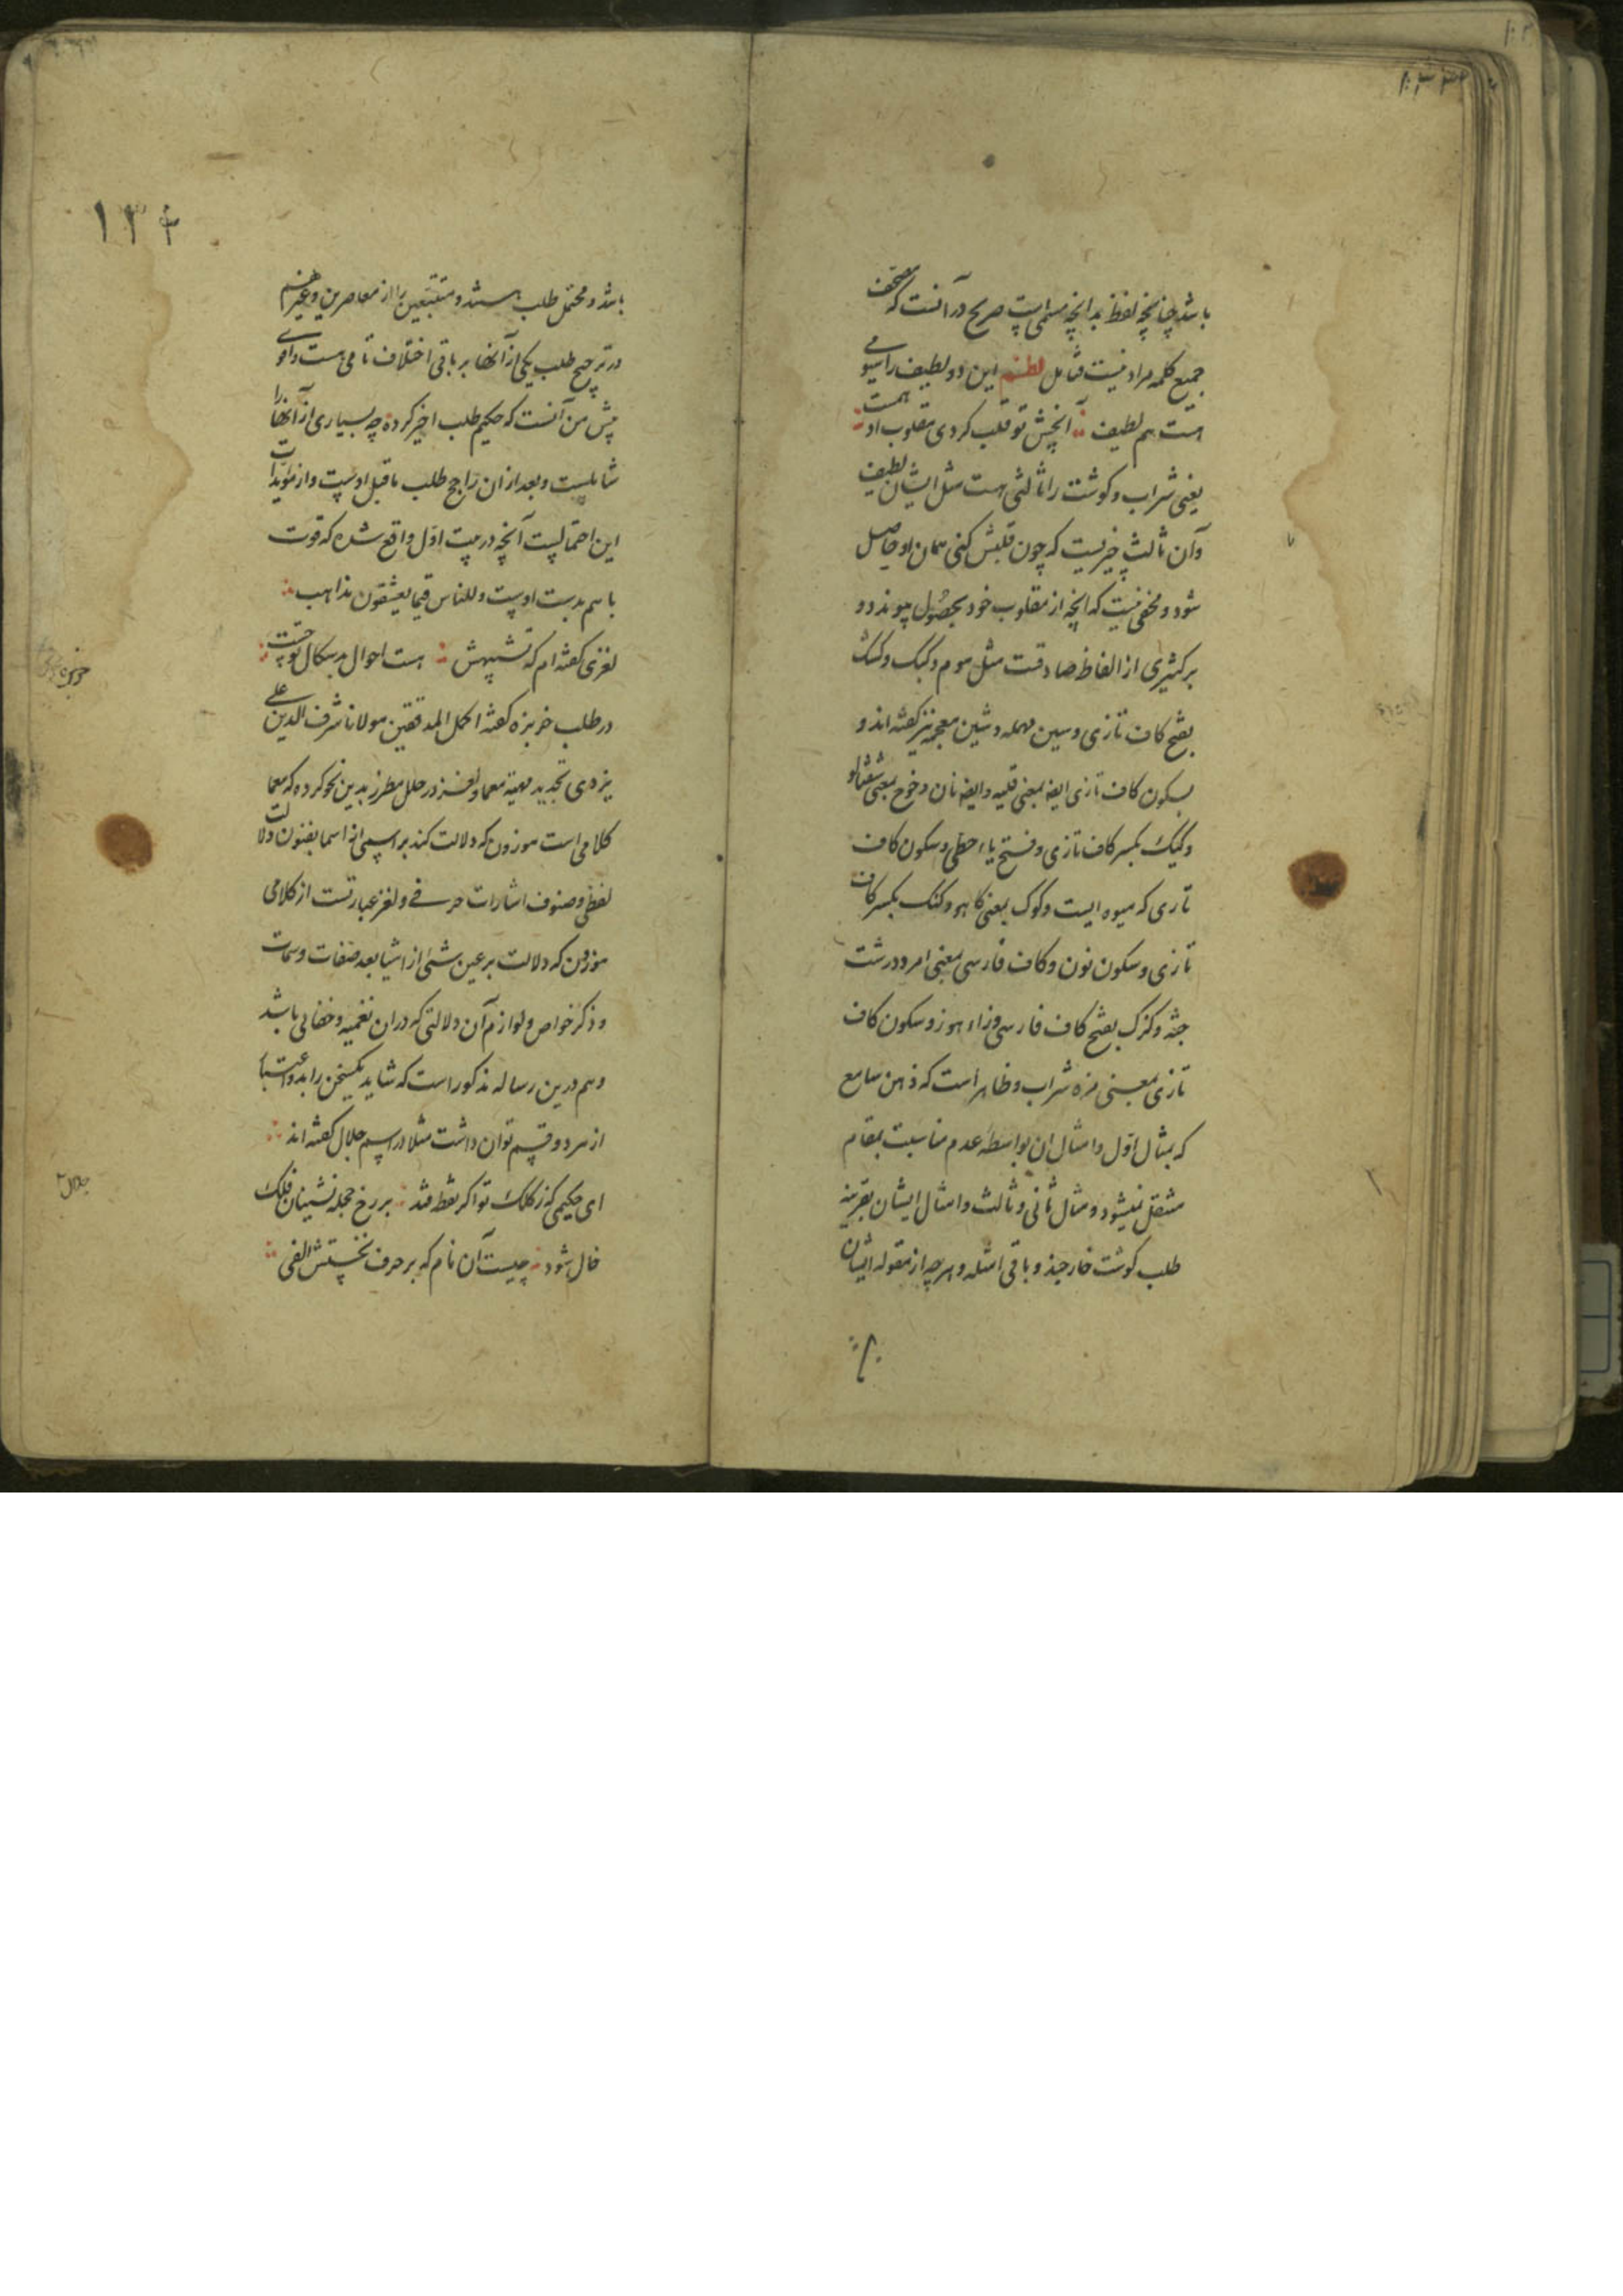 باشد چنانچه لفظ بدانچه مسمی است صریح در آنست که مصحف
جمیع کلمه مراد نیست فتامل لطف این دو لطیف را سیومی
هست هم لطیف آنچش تو قلب کردی مقلوب او همست
یعنی شراب و کوشت را ثالثی هست مثل ایشان لطیف
و آن ثالث چیزیست که چون قلبش کنی همان او حاصل
شود و مخفی نیست که انچه از مقلوب خود بحصول پیوندد و
بر کثیری از الفاظ صادقست مثل موم و کبک و کسک
بفتح کاف تازی و سین مهمله و شین معجمه نیز کفته اند و
بسکون کاف تازی ایضا بمعنی قلیه و ایضا نان و خوخ بمعنی شفتالو
و کیک بکسر کاف تازی و فتح یاء حطی و سکون کاف
تازی که میوه ایست و کوک بمعنی کاهو و کنک بکسر کاف
تازی و سکون نون و کاف فارسی بمعنی امرد درشت
جثه و کزک بفتح کاف فارسی و زاء هوز و سکون کاف
تازی بمعنی مزه شراب و ظاهر است که ذهن سامع
که بمثال اول و امثال ان بواسطه عدم مناسبت بمقام
منتقل نمیشود و مثال ثانی و ثالث و امثال ایشان بقرینه
طلب کوشت خارجند و باقی امثله و هرچه از مقوله ایشان
۱۳۴
باشد و محتمل طلب هستند و متتبعین را از معاصرین و غیرهم
در ترجیح طلب یکی از آنها بر باقی اختلاف تامی هست و اقوی
پیش من آنست که حکیم طلب اخیر کرده چه بسیاری از آنها را
شاملست و بعد از ان راجح طلب ماقبل اوست و از مؤیدات
این احتمالست آنچه در بیت اول واقع شده که قوت
باسم بدست اوست وللناس فیما یعشقون مذاهب
لغزی کفته ام که تشبیهش هست احوال بدسکال توجفت
در طلب خربزه کفته اکمل المدققین مولانا شرف الدین علی
یزدی تجدید مهیه معما و لغز در حلل مطرز بدین نحو کرده که معما
کلامی است موزون که دلالت کند بر اسمی از اسما بفنون دلالت
لفظی و صنوف اشارات حرفی و لغز عبارتست از کلامی
موزون که دلالت بر عین شئی از اشیا بعد صفات و سمات
و ذکر خواص و لوازم آن دلالتی که دران تعمیه و خفائی باشد
و هم درین رساله مذکور است که شاید یکسخن را بدو اعتبار
از هر دو قسم توان داشت مثلا در اسم جلال کفته اند
ای حکیمی که ز کلک تو اکر نقطه فتد بر رخ حجله نشینان فلک
خال شود چیست آن نام که بر حرف نخستش الفی
جلال